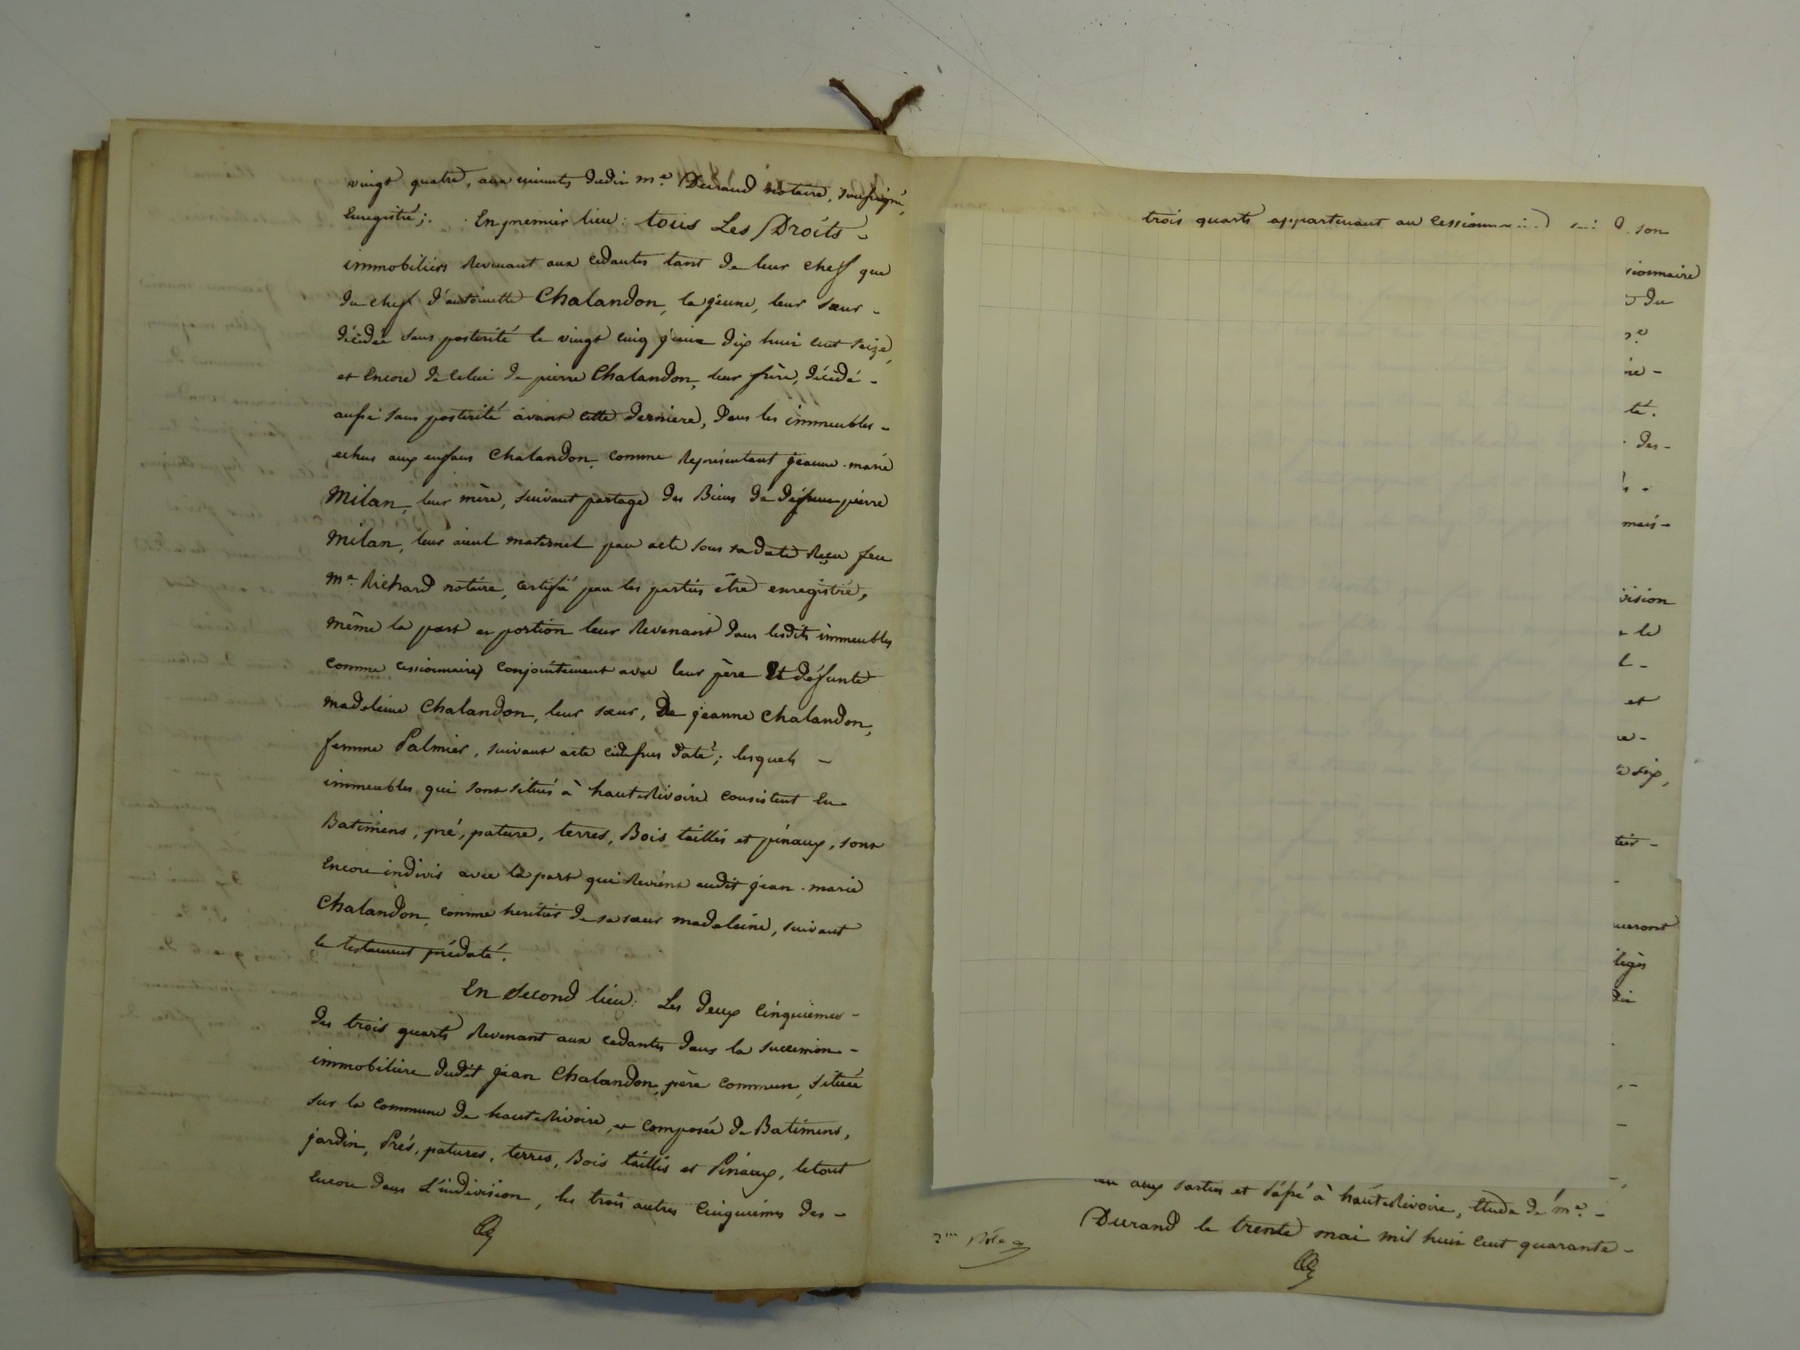 vingt quatre, aux minuts dudit me. Durand notaire, soussigné,
Enregistré; . En premier lieu: tous Les Droits -
immobiliers Revenant aux cedantes tant de leur chef que
du chef d'antoinette Chalandon, la jeune, leur sœur -
décédée sans posterité le vingt cinq dix huit cent seize,
et Encore de celui de pierre Chalandon, leur frère, décédé -
aussi sans posterité avant cette derniere, Dans les immeubles -
echus aux enfans Chalandon, comme Représentant jeanne-marie
Milan, leur mère, suivant partage des Biens de défunt pierre
Milan, leur aieul maternel par acte sous sa date Reçu feu
Me. Richard notaire, certifié par les parties être enregistré,
même la part et portion leur Revenant dans lesdits immeubles
comme cessionnaires conjointement avec leur père Et défunte
madeleine Chalandon, leur sœur, De jeanne Chalandon,
femme Palmier, suivant acte cidessus daté; lesquels -
immeubles qui sont situés à hauterivoire consistent En
Batimens, pré, pature, terres, Bois taillis et pinaux, sont
Encore indivis avec la part qui Revient audit jean-marie
Chalandon, comme heritier de sa sœur madeleine, suivant
le testament prédaté.
En second lieu: Les deux cinquièmes -
des trois quarts Revenant aux cedantes dans la succession -
immobilière dudit jean Chalandon, père commun, située
sur la commune de hauterivoire, et composée de Batimens,
jardin, Prés, patures, terres, Bois taillis et Pinaux, le tout
Encore dans L'indivision, les trois autres cinquièmes des -
trois quarts appartenant au son
ionnaire
du
té.
des -
mais -
vision
le
et
six,
dit
aux parties et passé à hauterivoire, Etude de me. -
Durand le trente mai mil huit cent quarante -
2me Rôle